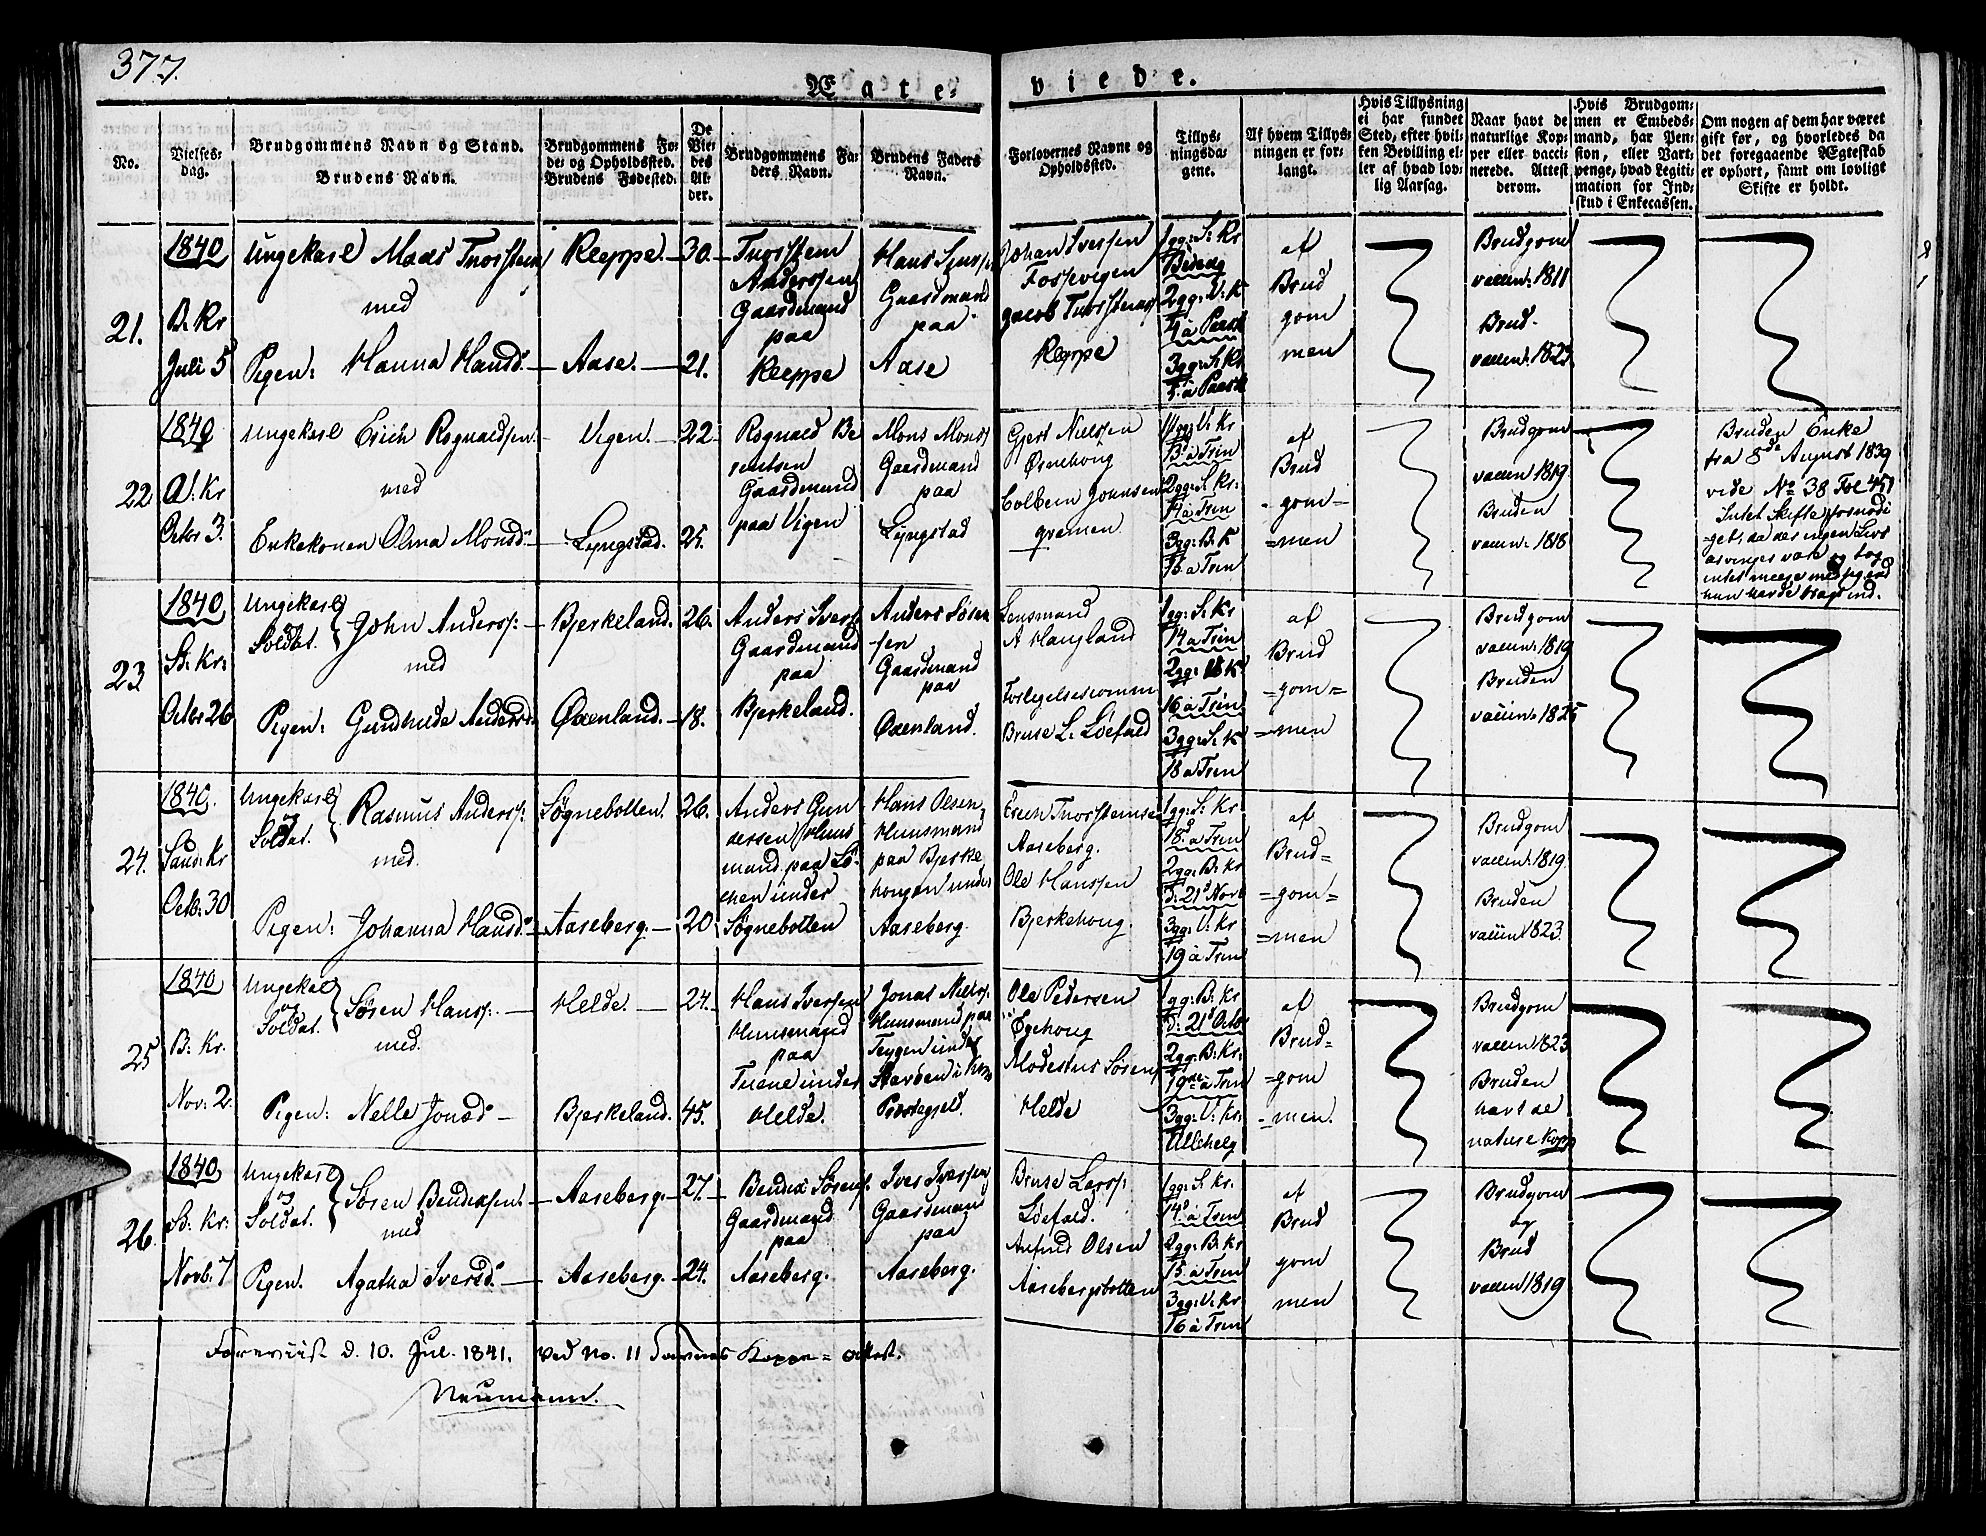 377.
Ægte- viede.
No.
Vielses-
dag.
Brudgommens Navn og Stand.
Brudens Navn.
Brudgommens Fø-
de- og Opholdssted.
Brudens Fødested.
De
Vie-
des
Al-
der.
Brudgommens Fa-
ders Navn.
Brudens Faders
Navn.
Forlovernes Navne og
Opholdssted.
Tillys-
ningsda-
gene.
Af hvem Tillys-
ningen er for-
langt.
Hvis Tillysning
ei har fundet
Sted, efter hvil-
ken Bevilling el-
ler af hvad lov-
lig Aarsag.
Naar havt de
naturlige Kop-
per eller vacci-
nerede. Attest
derom.
Hvis Brudgom-
men er Embeds-
mand, har Pen-
sion, eller Vart-
penge, hvad Legiti-
mation for Ind-
skud i Enkecassen.
Om nogen af dem har været
gift før, og hvorledes da
det foregaaende Ægteskab
er ophørt, samt om lovligt
Skifte er holdt.
21.
1840
B: Kr
Juli 5
Ungekarl Mads Thorstens
med
Pigen: Hanna Hansd:
Reppe
Aase.
30
21.
Thorsten
Anderssen
Gaardmand
paa
Reppe
Hans
Gaardmand
paa
Aase
Johan Iverssen
Fossevigen
Jacob Thorstens
Reppe
1gg: S: Kr
2gg: V: K
4 à Paask
3gg: S: Kr
5 à Paask
af
Brud
gom
men
Brudgom
vaccin: 1811
Brud.
vaccin: 1823
22
1840
Ol: Kr
Octbr 3.
Ungekarl Erich Rognaldsen
med
Enkekonen Olina Monsd:
Vigen
Lyngstad.
22
25.
Rognald Be
rentsen
Gaardmand
paa Vigen
Mons Mons
Gaardmand
paa
Lyngstad
Gjert Nielsen
Ørnehoug
Colbein Johnsen
qvernen
V: Kr
13 à Trin
2gg: S. Kr:
14 à Trin
3gg: B: K
16 à Trin
af
Brud
-gom=
=men
Brudgom
vaccin 1819
Bruden
vaccin: 1818
Bruden Enke
fra 8de August 1839
vide No 38 Fol 457
Intet Skifte fornødi
get, da der ingen Livs
arvinger var og tog
intet meer med sig end
hun havde bragt ind.
23
1840
S: Kr:
Octbr 26
Ungekarl
og
Soldat. John Anderss:
med
Pigen: Gundhilde Andersd:
Bjerkeland.
Øxenland.
26.
18.
Anders Iverss
Gaardmand
paa
Bjerkeland.
Anders Sören
sen
Gaardmand
paa
Øxenland.
Lensmand
A Haugland
Forligelsescomm
Bruse L. Löefald
1gg: S: Kr
14 à Trin
2gg: V: K
16 à Trin
3gg: S: K
18 à Trin
af
Brud
=gom=
=men
Brudgom
vaccin: 1819
Bruden
vaccin: 1825
24.
1840.
Sand: Kr
Octb: 30
Ungekarl
og
Soldat. Rasmus Anderss:
med.
Pigen: Johanna Hansd:
Søgnebotten.
Aaseberg.
26.
20
Anders Gun
derssen Huus
mand paa Lö-
chen under
Søgnebotten
Hans Olsen
Huusmand
paa Bjerke
hougen under
Aaseberg.
Erich Thorstensen
Aaseberg.
Ole Hanssen
Bjerkehoug.
1gg: S. Kr
18 à Trin
2gg: B: kr
D: 21d Novb
3gg: V: kr
19 à Trin
af
Brud=
=gom=
=men
Brudgom
vaccin: 1819
Bruden
vaccin 1823.
25
1840
B: Kr.
Nov: 2.
Ungekarl
og
Soldat. Sören Hanss:
med.
Pigen: Nelle Jonsd:
Helde.
Bjerkeland.
24.
45.
Hans Iverssen
Huusmand
paa
Tuene under
Helde.
Jonas Nielss:
Huusmand paa
Teygen under
Præstegjeld.
Ole Pedersen
Egehoug
Modestus Sörens
Helde
1gg: B: Kr
D: 21d Octb
2gg: B: Kr:
19de à Trin
3gg: V: kr:
Allehelg
af
Brud=
=gom
=men.
Brudgom
vaccin 1823
Bruden
havt de
naturl Kopp
26.
1840
S: Kr:
Novb: 7
Ungekarl
og
Soldat. Sören Bendixsen
med
Pigen. Agatha Iversd:
Aaseberg.
Aaseberg.
27.
24.
Bendix Sörens
Gaardmand
paa
Aaseberg.
Iver Iverssen
Gaardmand
paa
Aaseberg.
Bruse Larss:
Löefald.
Olsen
Aasebergsbotten
1gg: S: Kr.
14d à Trin
2gg: B: Kr
15 à Trin
3gg: V: Kr
16 à Trin
af
Brud
gom
men
Brudgom
og
Brud
vaccin 1819
Foreviist d. 10. Jul. 1841. ved No. 11 attest.
Neumann.